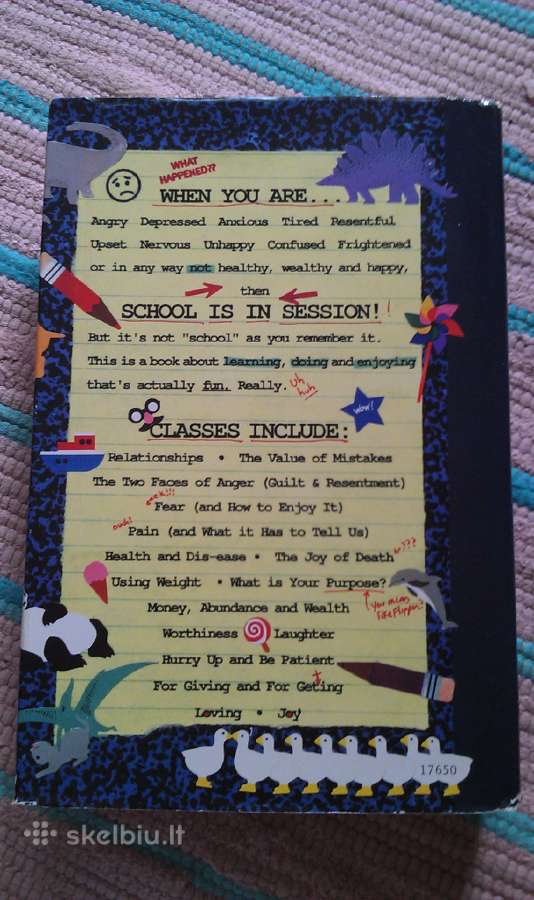 WHAT
HAPPENED??
WHEN YOU ARE...
Angry Depressed Anxious Tired Resentful
Upset Nervous Unhappy Confused Frightened
or in any way not healthy, wealthy and happy,
then
SCHOOL IS IN SESSION!!
But it's not "school" as you remember it.
This is a book about learning, doing and enjoying
that's actually fun. Really. Uh
huh
wow!
CLASSES INCLUDE:
Relationships • The Value of Mistakes
The Two Faces of Anger (Guilt & Resentment)
eeek!!!
Fear (and How to Enjoy It)
ouch!
Pain (and What it Has to Tell Us)
Health and Dis-ease • The Joy of Death
Using Weight • What is Your Purpose?
You mean
like Flipper?
Money, Abundance and Wealth
Worthiness Laughter
Hurry Up and Be Patient
t
For Giving and For Geting
Loving • Joy
17650
skelbiu.lt